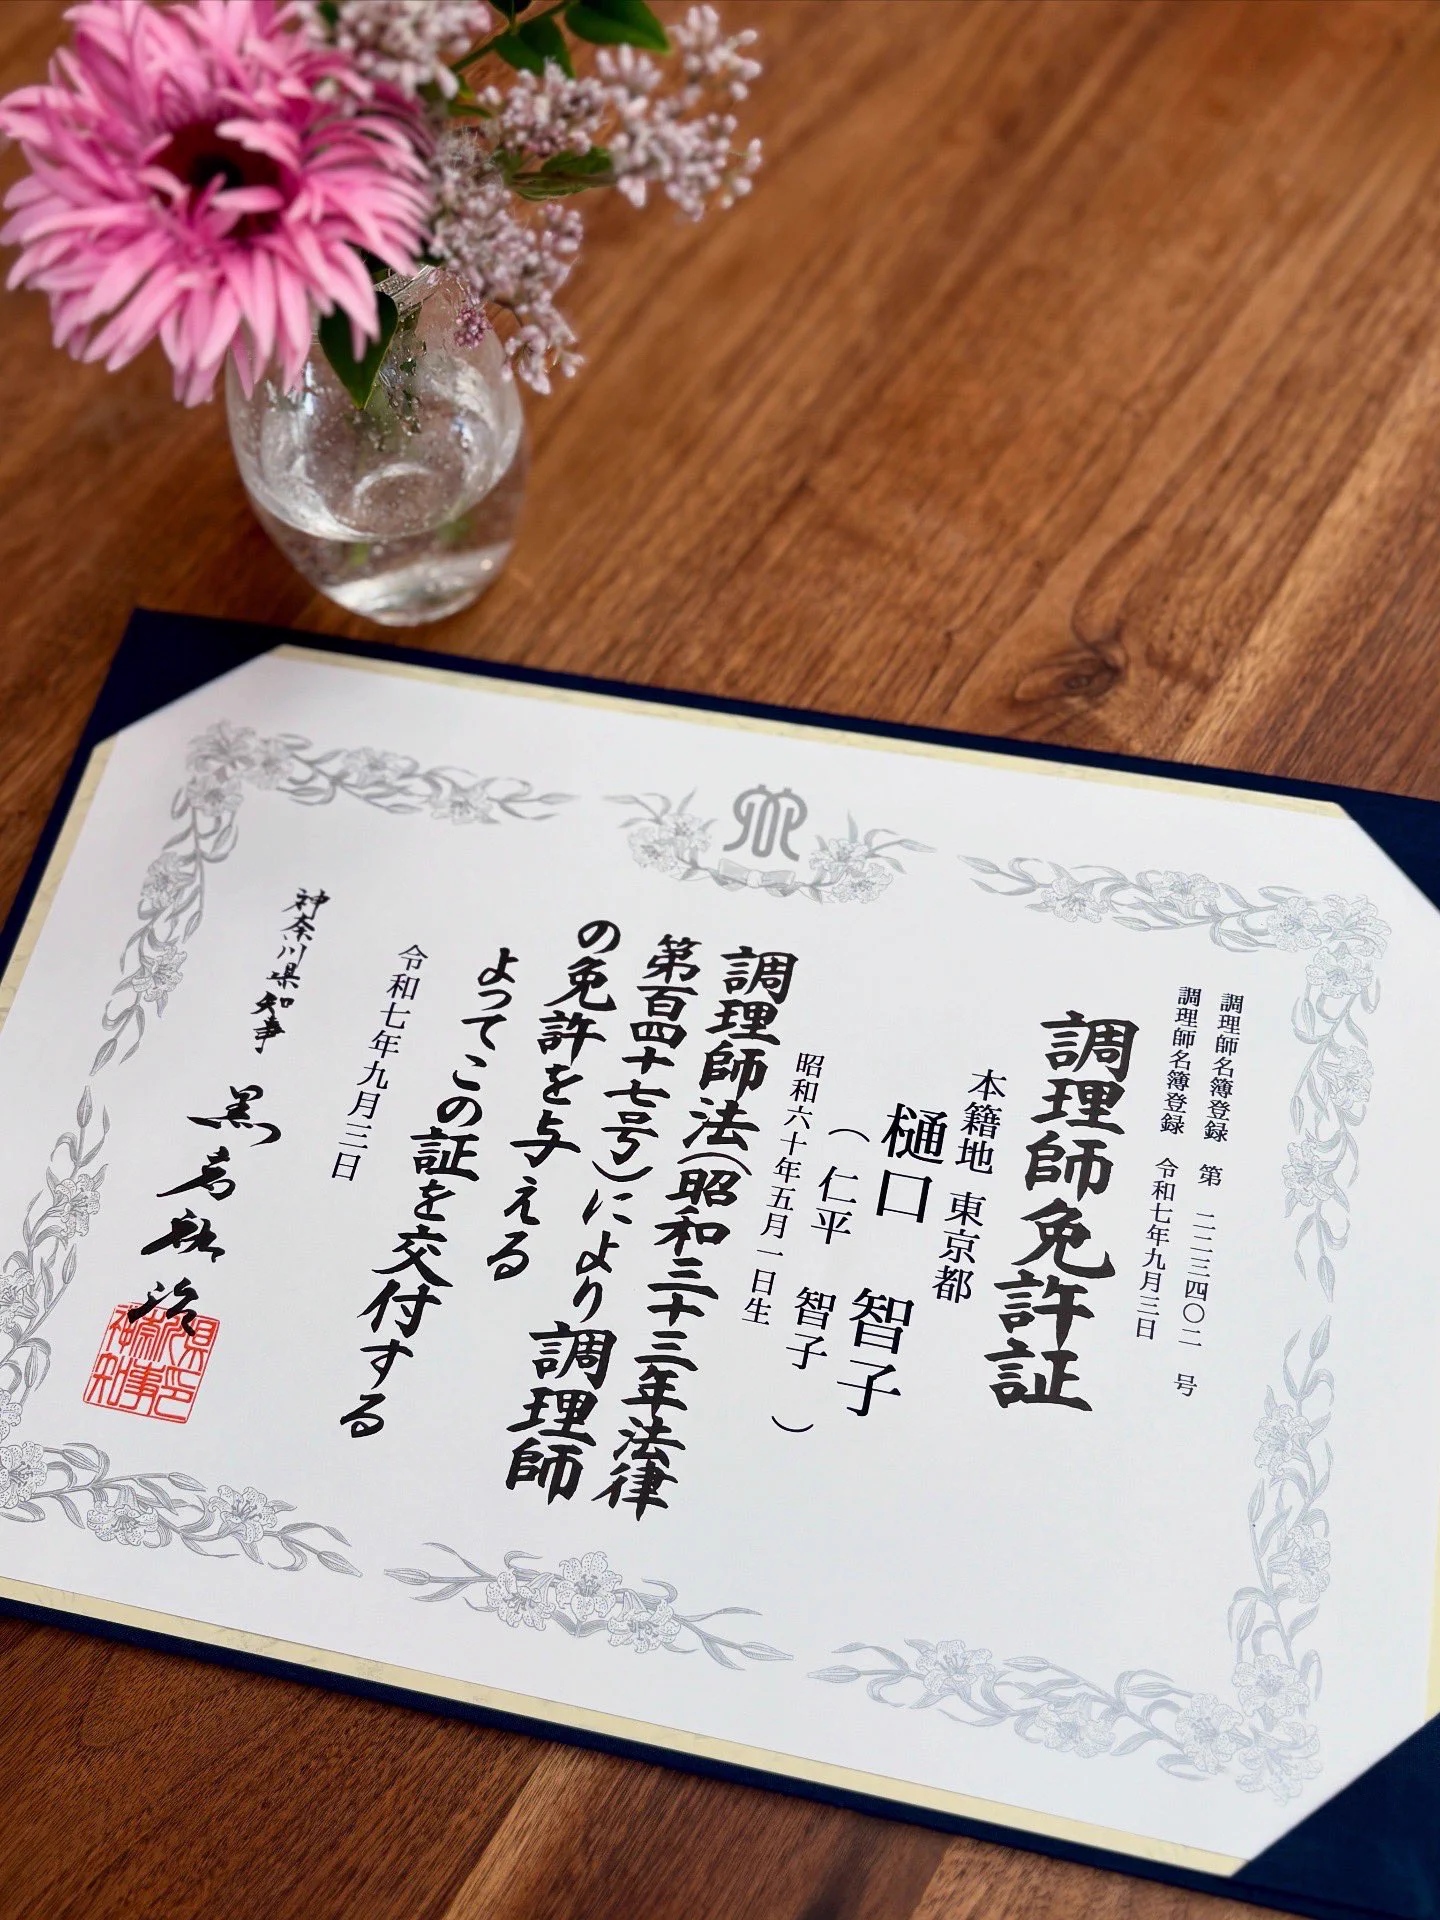 調理師名簿登録 第 二二三四〇二 号
調理師名簿登録 令和七年九月三日
調理師免許証
本籍地 東京都
樋口 智子
（仁平 智子）
昭和六十年五月一日生
調理師法(昭和三十三年法律
第百四十七号)により調理師
の免許を与える
よってこの証を交付する
令和七年九月三日
神奈川県知事 黒岩祐治